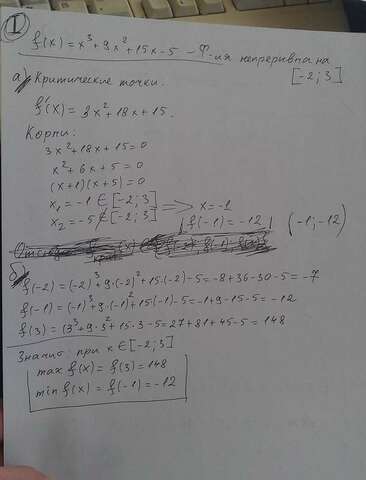 I
f(x) = x³+9x²+15x-5 – Ф-ия непрерывна на [-2; 3]
а) Критические точки.
f'(x) = 3x²+18x+15.
Корни:
3x²+18x+15=0
x²+6x+5=0
(x+1)(x+5)=0
x₁=-1 ∈ [-2; 3] => x=-1
x₂=-5 ∉ [-2; 3] f(-1)=-12 (-1; -12)
б)
f(-2)=(-2)³+9·(-2)²+15·(-2)-5=-8+36-30-5=-7
f(-1)=(-1)³+9·(-1)²+15(-1)-5=-1+9-15-5=-12
f(3)=(3³+9·3²+15·3-5=27+81+45-5=148
Значит: при x∈[-2; 3]
max f(x)=f(3)=148
min f(x)=f(-1)=-12